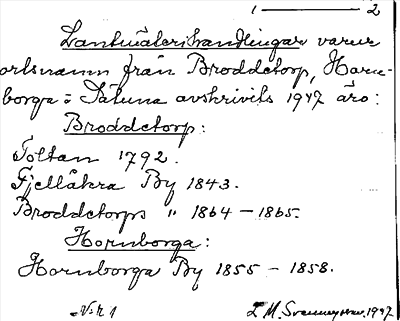 1 — 2
Lantmäterihandlingar varur
ortsnamn från Broddetorp, Horn-
borga o Sätuna avskrivits 1947 äro:
Broddetorp:
Toltan 1792.
Fjellåkra By 1843.
Broddetorps " 1864 – 1865.
Hornborga:
Hornborga By 1855 – 1858.
N:r 1
1947